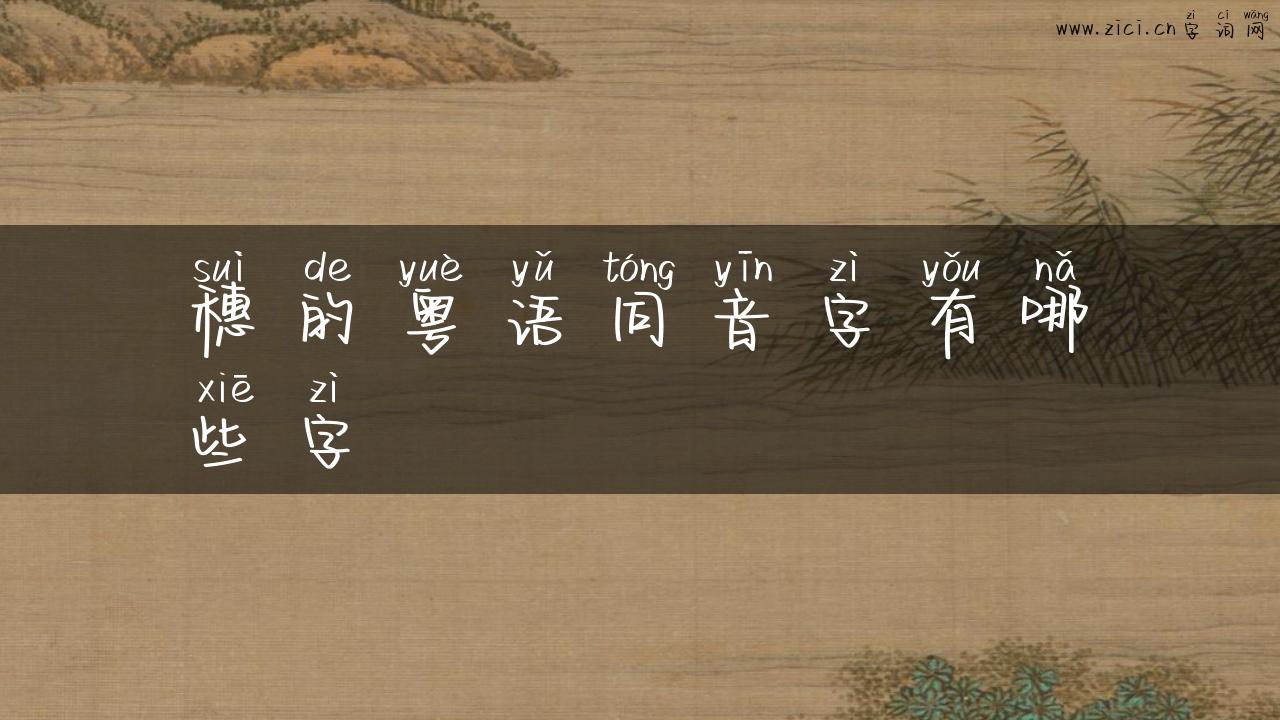 zì cí wǎng
www.zici.cn 字 词 网
suì de yuè yǔ tóng yīn zì yǒu nǎ
穗 的 粤 语 同 音 字 有 哪
xiē zì
些 字